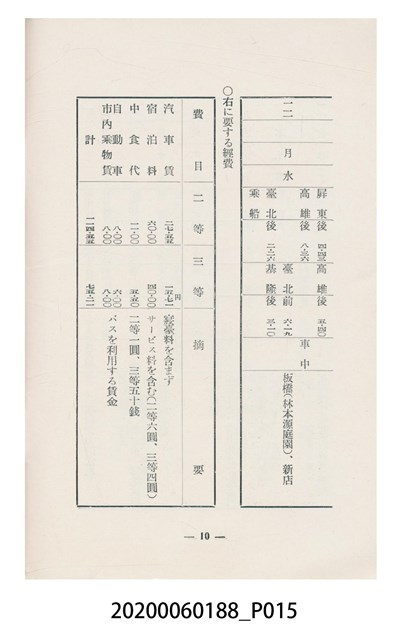 一二
月 水
屏東後 四・四三 高雄後 五・四〇
高雄後 八・三六 臺北前 六・一九
臺北後 二・二六 基隆後 三・一〇
乘船
車中
板橋(林本源庭園)、新店
〇右に要する經費
費目 二等 三等 摘要
汽車賃 二七・五五 一五・七一圓 寢臺料を含まず
宿泊料 六〇・〇〇 四〇・〇〇 サービス料を含む(二等六圓、三等四圓)
中食代 一一・〇〇 五・五〇 二等一圓、三等五十錢
自動車 八・〇〇 六・〇〇 バスを利用する賃金
市內乘物賃 八・〇〇 八・〇〇
計 一一四・五五 七五・二一
— 10 —
20200060188_P015